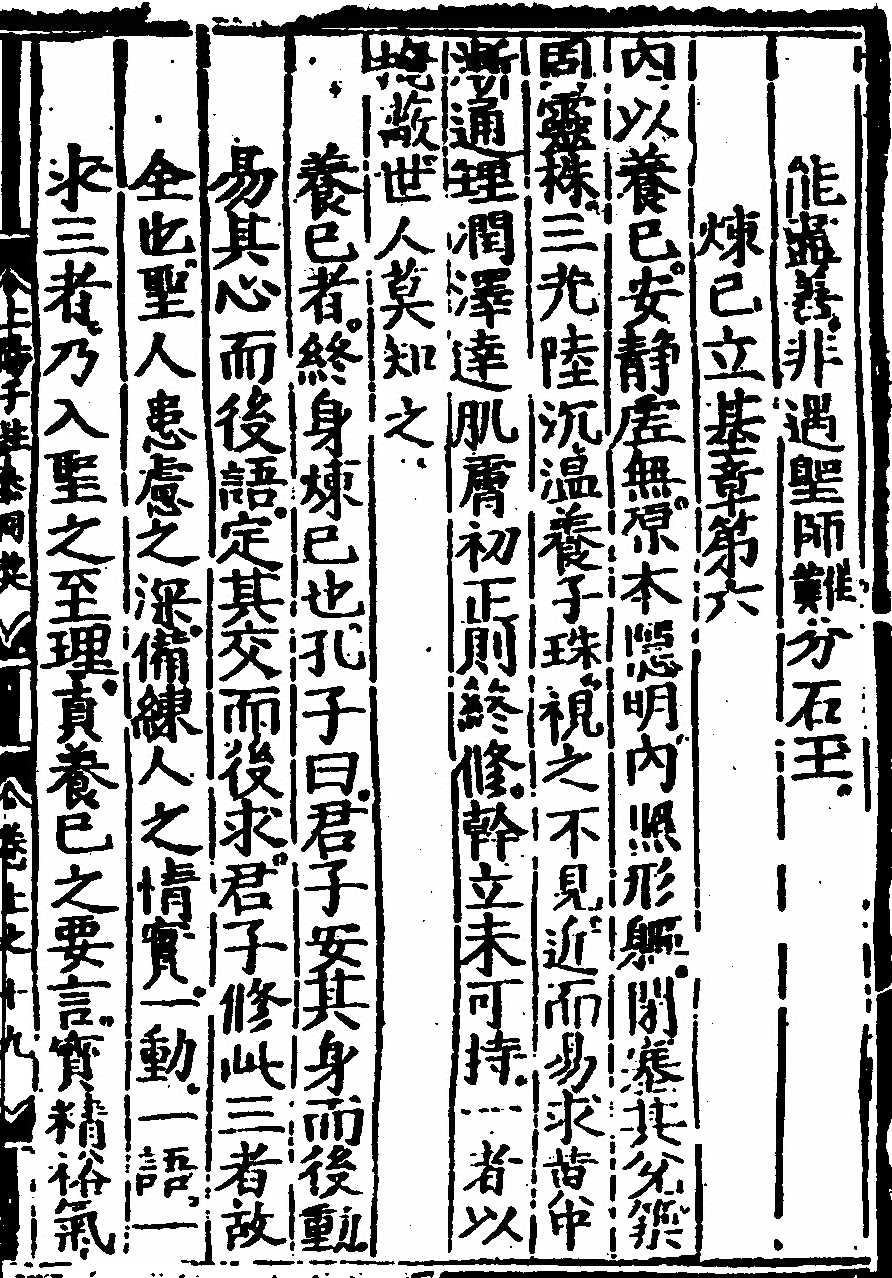 能盡善非遇聖師難分石玉
煉己立基章第六
內以養已安靜虛無原本隱明內照形軀閉塞其兌築
固靈株三光陸沉溫養子珠視之不見近而易求黃中
漸通理潤澤達肌膚初正則終修幹立未可持一者以
掩蔽世人莫知之
養已者終身煉已也孔子曰君子安其身而後動
易其心而後語定其交而後求君子修此三者故
全也聖人患慮之深備練人之情實一動一語一
求三者乃入聖之至理真養已之要言寳精裕氣
上陽子註參同契 卷上之十九